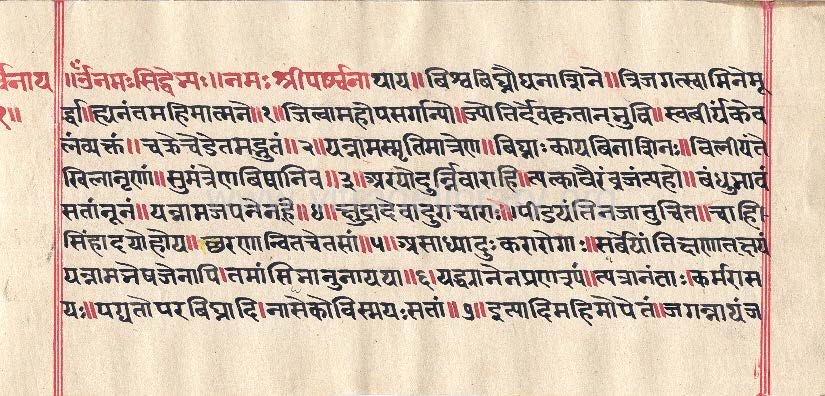 र्श्वनाय ॥ॐनमःसिद्धेभ्यः॥नमः श्रीपार्श्वनाथाय॥विश्वविघ्नौघनाशिने॥त्रिजगत्स्वामिनेमू
१॥ र्द्ध्ना॥ह्यनंतमहिमात्मने॥१॥जित्वामहोपसर्गान्यो॥ज्योतिर्देवकृतान्भुवि॥स्ववीर्यंकेव
लंव्यक्तं॥चक्रेचेडेतमद्भुतं॥२॥यन्नामस्मृतिमात्रेण॥विघ्नाःकायविनाशिनः॥विलीयंते
खिलानृणां॥सुमंत्रेणविषानिव॥३॥अरयोदुर्न्निवाराहि॥त्यक्त्वावैरंव्रजंत्यहो॥बंधुभावं
सतांनूनं॥यन्नामजपनेनहि॥४॥क्षुद्रादेवादुराचाराः॥पीडयंतिनजातुचित॥चाहि
सिंहादयोह्रीय॥च्चरणान्वितचेतसां॥५॥असाध्यादुःकरारोगाः॥सर्वेयांतिक्षणात्क्षयं
यन्नामभेषजेनापि।तमांसिभानुनायथा॥६॥यद्ध्यानेनप्रणश्यं॥त्यत्रानंताः।कर्मराश
यः॥पद्यतोपरविघ्नादि।नासेकोविस्मयःसतां॥७॥इत्यादिमहिमोपेतं॥जगन्नाथंज